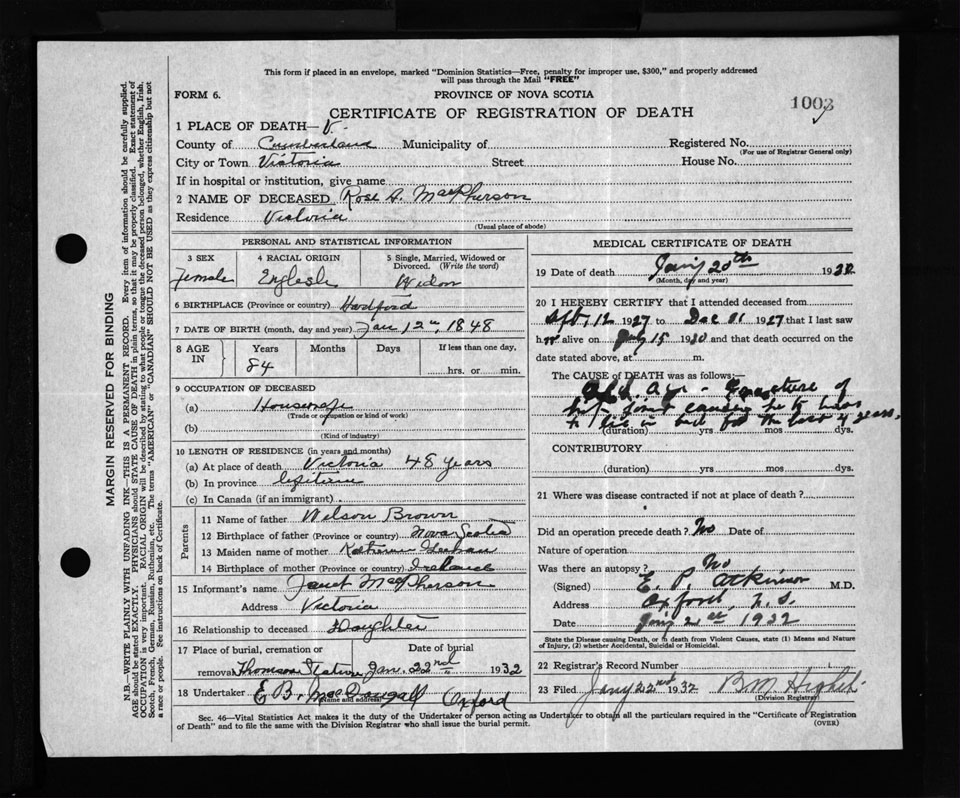 This form if placed in an envelope, marked "Dominion Statistics—Free, penalty for improper use, $300," and properly addressed
will pass through the Mail "FREE"
FORM 6.
PROVINCE OF NOVA SCOTIA
1003
CERTIFICATE OF REGISTRATION OF DEATH
1 PLACE OF DEATH—V.
County of Cumberland Municipality of Registered No.
(For use of Registrar General only)
City or Town Victoria Street House No.
If in hospital or institution, give name
2 NAME OF DECEASED Rose A. MacPherson
Residence Victoria
(Usual place of abode)
PERSONAL AND STATISTICAL INFORMATION
3 SEX
Female
4 RACIAL ORIGIN
English
5 Single, Married, Widowed or
Divorced. (Write the word)
Widow
6 BIRTHPLACE (Province or country)
7 DATE OF BIRTH (month, day and year) Jan 12th, 1848
8 AGE IN
Years Months Days If less than one day,
84
hrs. or min.
9 OCCUPATION OF DECEASED
(a) Housewife
(Trade or occupation or kind of work)
(b)
(Kind of industry)
10 LENGTH OF RESIDENCE (in years and months)
(a) At place of death Victoria 48 years
(b) In province lifetime
(c) In Canada (if an immigrant)
Parents
11 Name of father Wilson Brown
12 Birthplace of father (Province or country) Nova Scotia
13 Maiden name of mother
14 Birthplace of mother (Province or country) Ireland
15 Informant's name Janet MacPherson
Address Victoria
16 Relationship to deceased Daughter
17 Place of burial, cremation or
removal Thomson Station
Date of burial
Jan. 22nd 1932
18 Undertaker E B. MacDougall Oxford
(Name and address)
MEDICAL CERTIFICATE OF DEATH
19 Date of death Jany 20th 1932
(Month, day and year)
20 I HEREBY CERTIFY that I attended deceased from
Sept, 12 1927 to Dec 1927 that I last saw
her alive on July 15 1930 and that death occurred on the
date stated above, at m.
The CAUSE OF DEATH was as follows:—
Old age - fracture of
hip joint causing her to have
to lie in bed for the last 4 years.
(duration) yrs mos dys.
CONTRIBUTORY
(duration) yrs. mos. dys.
21 Where was disease contracted if not at place of death?
Did an operation precede death? No Date of
Nature of operation
Was there an autopsy? No
(Signed) E. P. Atkinson M.D.
Address Oxford, N.S.
Date Jany 21st 1932
State the Disease causing Death, or in death from Violent Causes, state (1) Means and Nature
of Injury, (2) whether Accidental, Suicidal or Homicidal.
22 Registrar's Record Number
23 Filed Jany 22nd 1932
(Division Registrar)
Sec. 46—Vital Statistics Act makes it the duty of the Undertaker or person acting as Undertaker to obtain all the particulars required in the "Certificate of Registration
of Death" and to file the same with the Division Registrar who shall issue the burial permit.
(OVER)
MARGIN RESERVED FOR BINDING
N.B.—WRITE PLAINLY WITH UNFADING INK—THIS IS A PERMANENT RECORD. Every item of information should be carefully supplied.
AGE should be stated EXACTLY. PHYSICIANS should STATE CAUSE OF DEATH in plain terms, so that it may be properly classified. Exact statement of
OCCUPATION is very important. RACIAL ORIGIN will be described by stating to what people or tongue the deceased person belonged, whether English, Irish,
Scotch, French, German, Russian, Ruthenian, etc. The terms "AMERICAN" or "CANADIAN" SHOULD NOT BE USED as they express citizenship but not
a race or people. See instructions on back of Certificate.